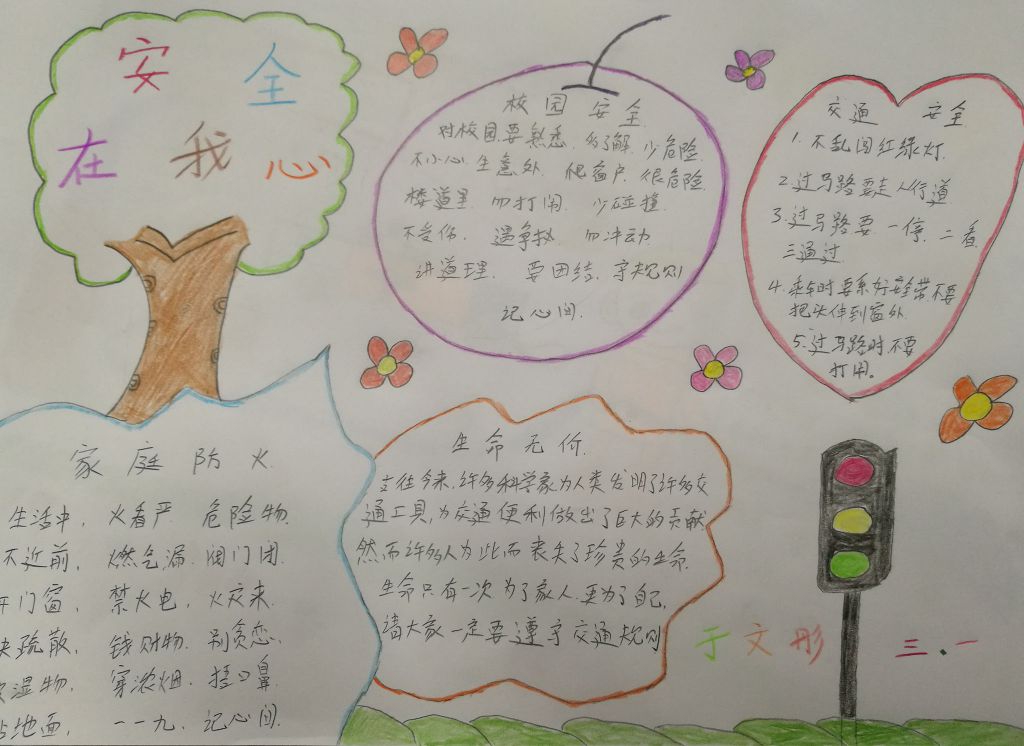 安 全
在 我 心
校 园 安 全
对校园,要熟悉,多了解,少危险.
不小心,生意外,爬窗户,很危险.
楼道里,勿打闹,少碰撞,
不受伤,遇争执,勿冲动
讲道理,要团结,守规则
记心间.
交通 安全
1.不乱闯红绿灯.
2.过马路要走人行道
3.过马路要一停,二看
三通过
4.乘车时要系好安全带不要
把头伸到窗外.
5.过马路时,不要
打闹。
家 庭 防 火
生活中,火看严,危险物.
不近前,燃气漏,阀门闭.
开门窗,禁火电,火灾来.
疏散,钱财物,别贪恋.
湿物,穿浓烟,捂口鼻
地面,一一九,记心间.
生 命 无 价
古往今来,许多科学家为人类发明了许多交
通工具,为交通便利做出了巨大的贡献
然而许多人为此而丧失了珍贵的生命.
生命只有一次为了家人,更为了自己,
请大家一定要遵守交通规则
于文彤 三.一